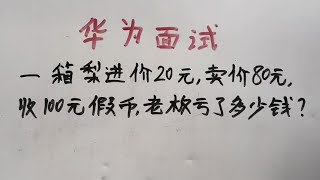 华为面试
一箱梨进价20元,卖价80元,
收100元假币,老板亏了多少钱?